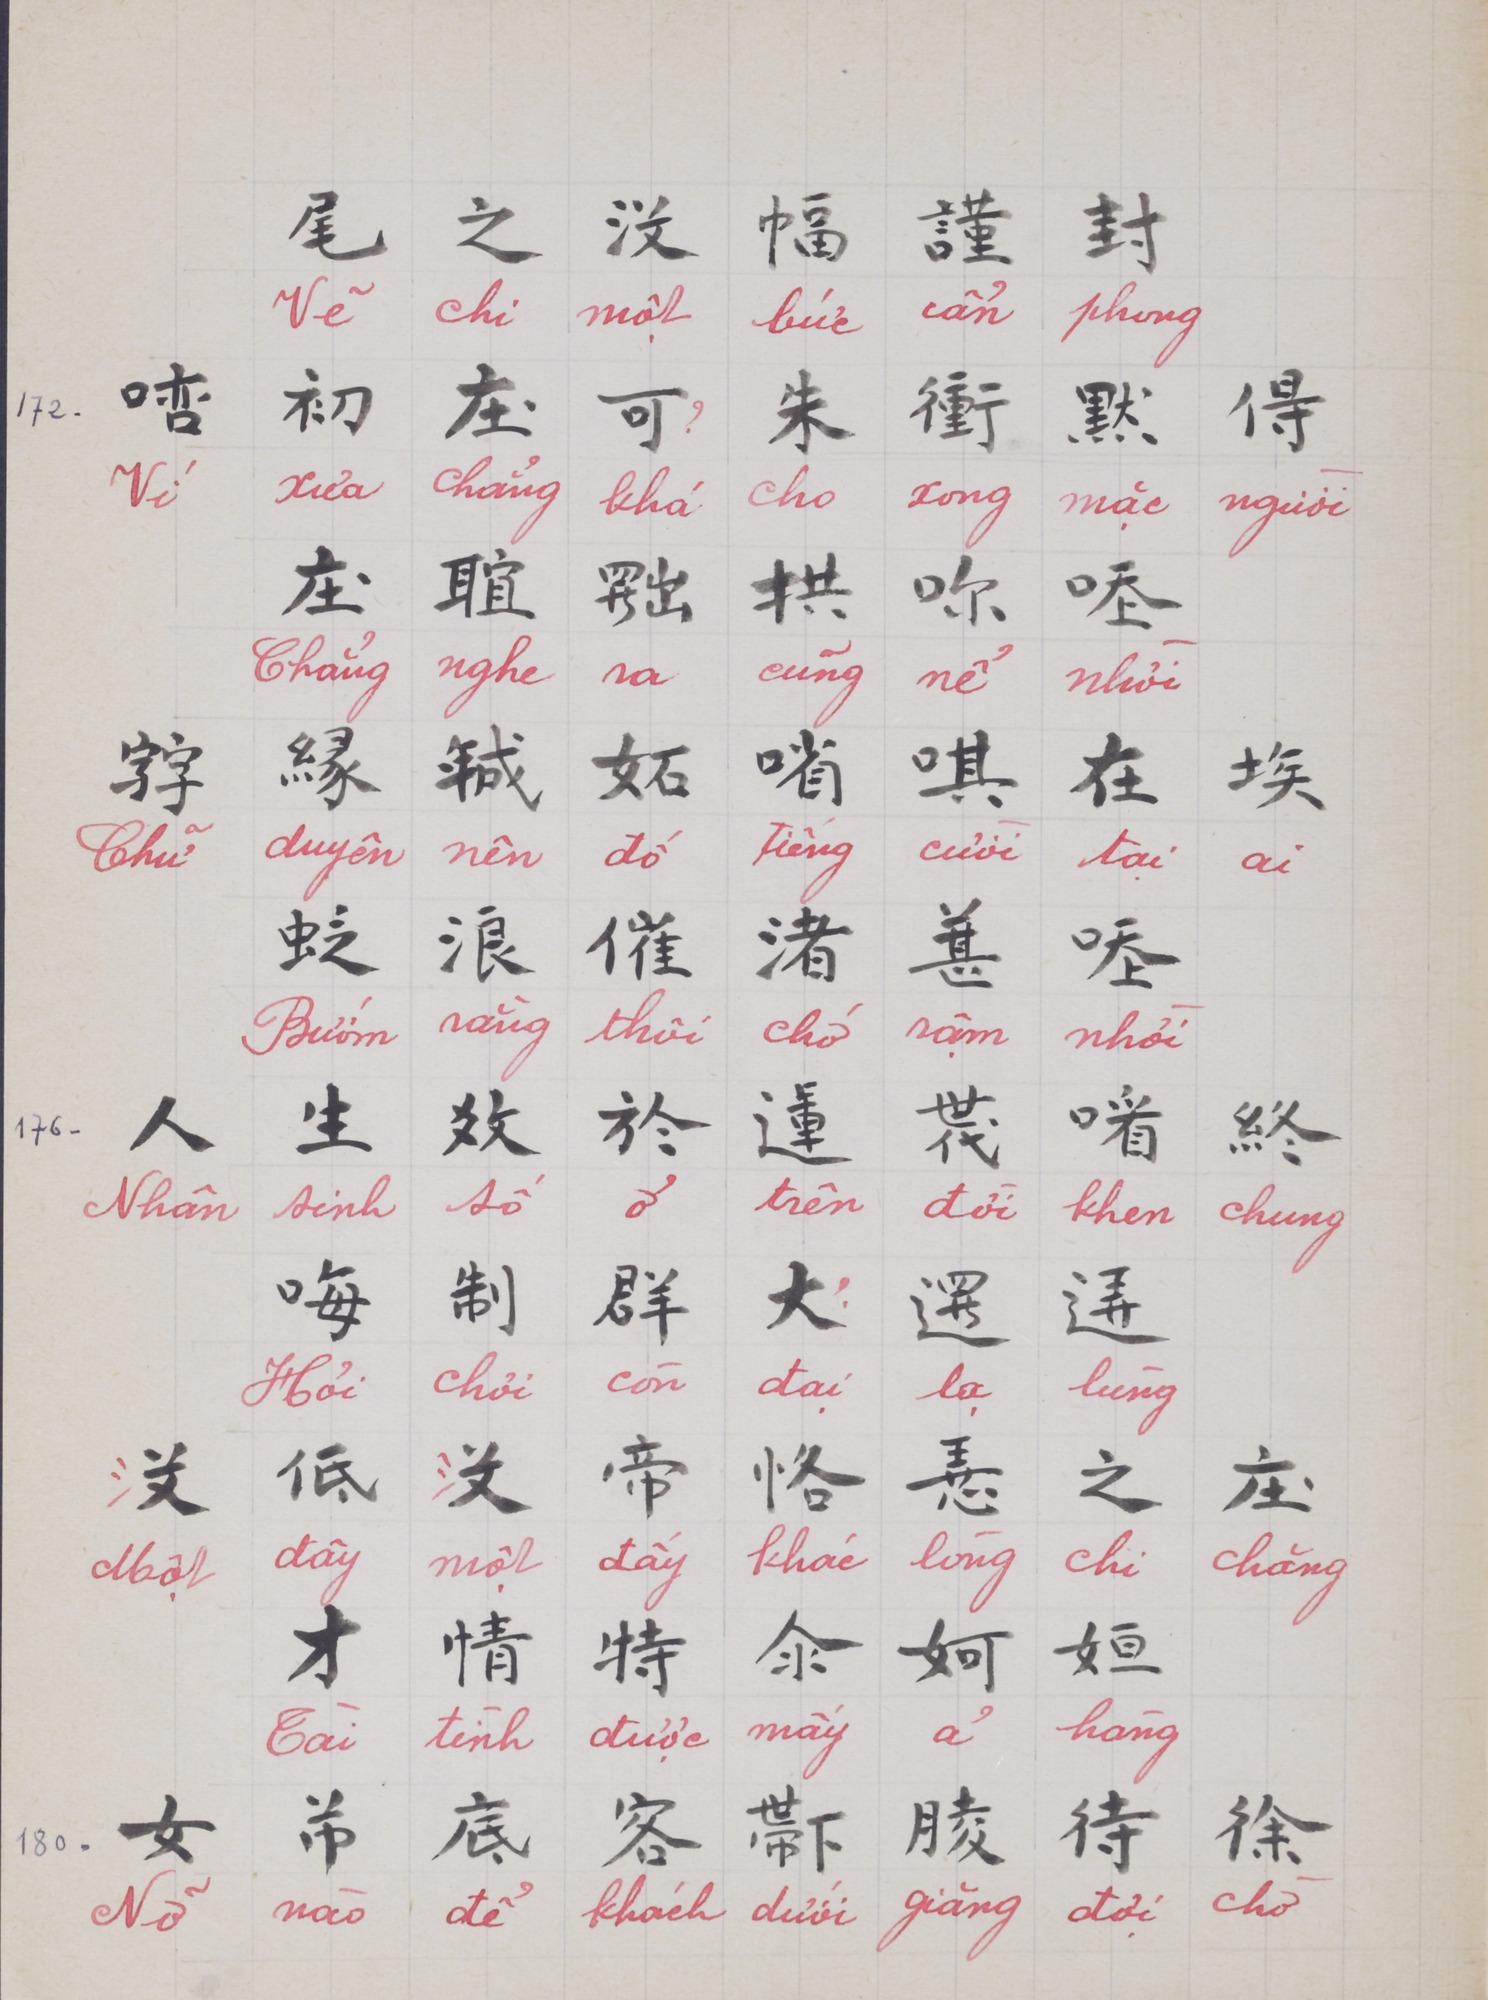 尾 之 沒 幅 謹 封
Vẽ chi một bức cẩn phong
172. 㖼 初 庄 可? 朱 衝 默 㝵
Ví xưa chẳng khá cho xong mặc người
庄 聣 𦋦 拱 㖠 𠳒
Chẳng nghe ra cũng nể nhời
𡨸 緣 𢧚 妬 㗂 唭 在 埃
Chữ duyên nên đố tiếng cười tại ai
浪 催 渚 葚 𠳒
Bướm rằng thôi chớ rậm nhời
176- 人 生 效 於 蓮 𠁀 㗖 終
Nhân sinh số ở trên đời khen chung
㖼 制 群 大? 邏 逬
Hỏi chơi còn đại lạ lùng
沒 低 沒 帝 恪 𢚸 之 庄
Một đây một đấy khác lòng chi chăng
才 情 特 㐱 妸 姮
Tài tình được mấy ả hằng
180. 女 芇 底 客 𠁑 䏾 待 徐
Nỡ nào để khách dưới giăng đợi chờ